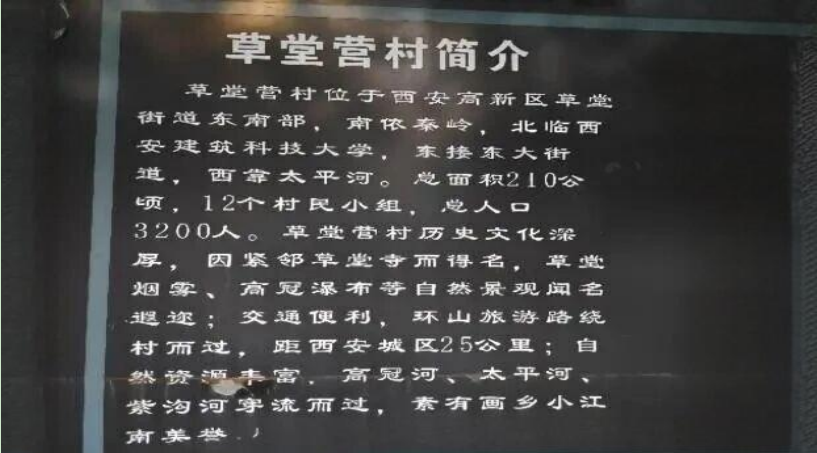 草堂营村简介
草堂营村位于西安高新区草堂
街道东南部，南依秦岭，北临西
安建筑科技大学，东接东大街
道，西靠太平河。总面积210公
顷，12个村民小组，总人口
3200人。草堂营村历史文化深
厚，因紧邻草堂寺而得名，草堂
烟雾、高冠瀑布等自然景观闻名
遐迩；交通便利，环山旅游路绕
村而过，距西安城区25公里；自
然资源丰富，高冠河、太平河、
紫沟河穿流而过，素有画乡小江
南美誉.